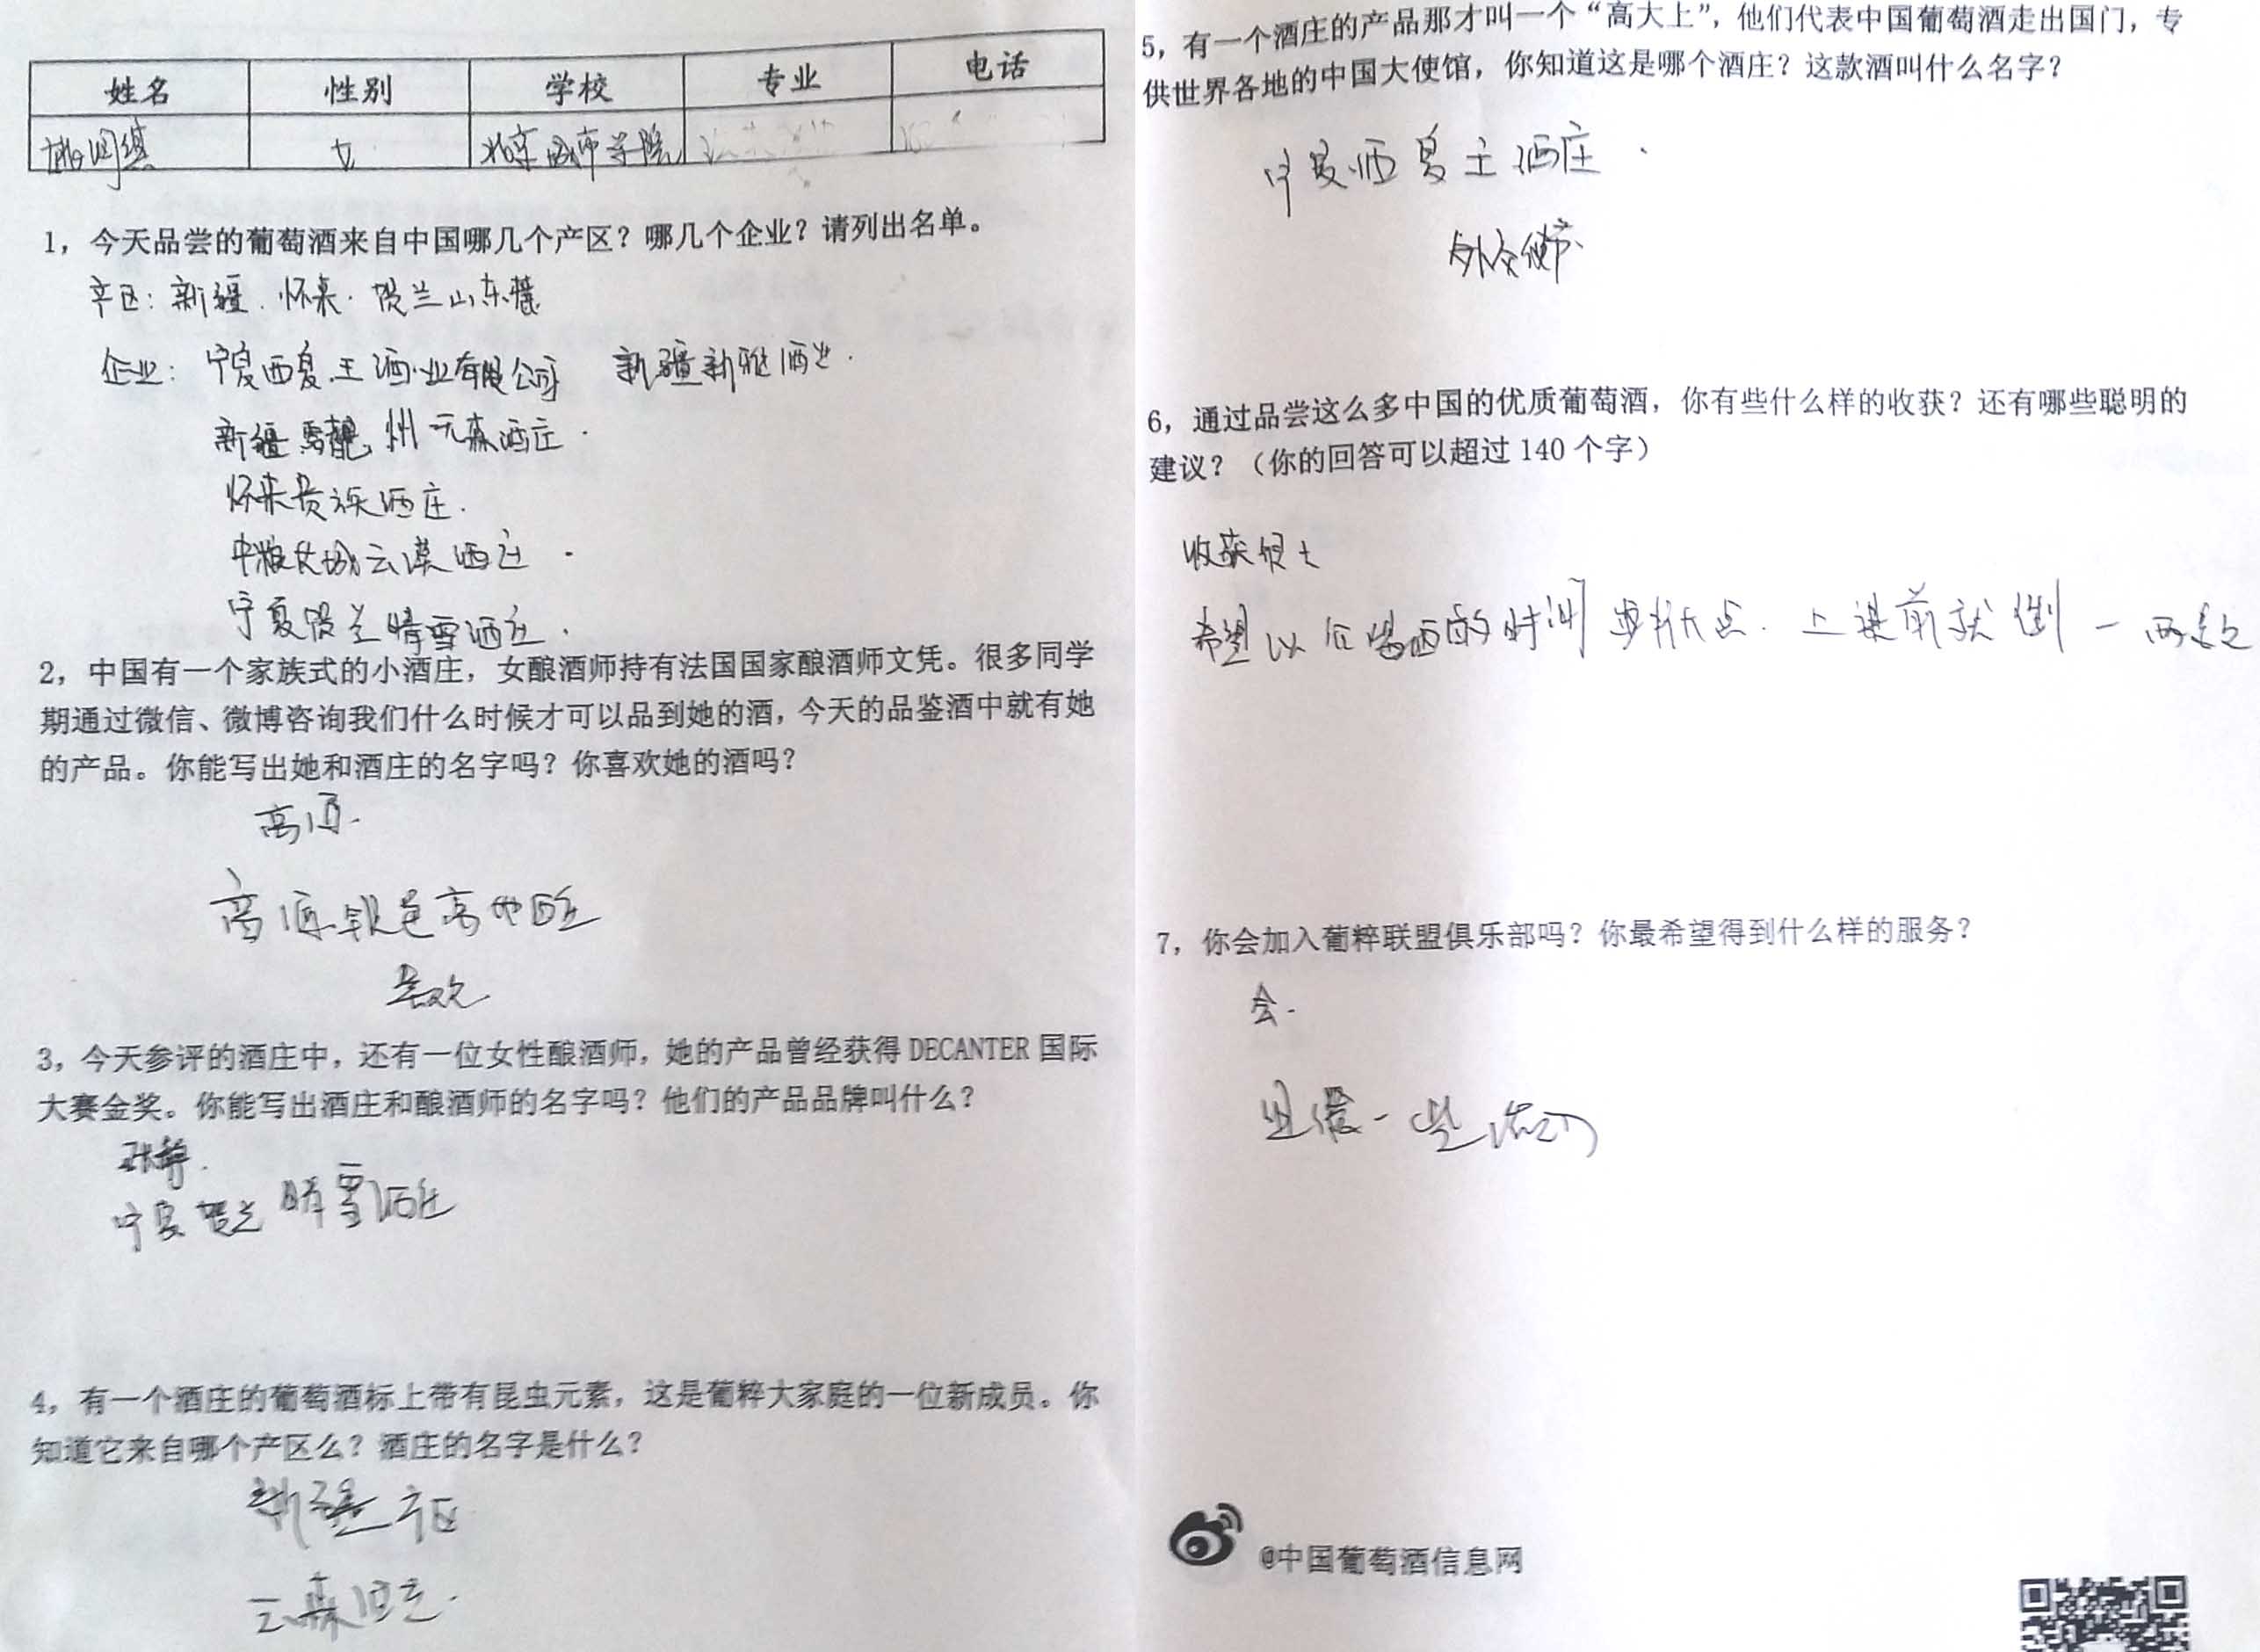 姓名 性别 学校 专业 电话
女 北京城市学院
1，今天品尝的葡萄酒来自中国哪几个产区？哪几个企业？请列出名单。
产区：新疆．怀来．贺兰山东麓
企业：宁夏西夏王酒业有限公司 新疆新雅酒业．
新疆 州元森酒庄．
怀来贵族酒庄．
中粮长城云漠酒庄．
宁夏贺兰晴雪酒庄．
2，中国有一个家族式的小酒庄，女酿酒师持有法国国家酿酒师文凭。很多同学
期通过微信、微博咨询我们什么时候才可以品到她的酒，今天的品鉴酒中就有她
的产品。你能写出她和酒庄的名字吗？你喜欢她的酒吗？
高源．
高源 银色高地酒庄
喜欢
3，今天参评的酒庄中，还有一位女性酿酒师，她的产品曾经获得 DECANTER 国际
大赛金奖。你能写出酒庄和酿酒师的名字吗？他们的产品品牌叫什么？
张静．
宁夏贺兰晴雪酒庄
4，有一个酒庄的葡萄酒标上带有昆虫元素，这是葡粹大家庭的一位新成员。你
知道它来自哪个产区么？酒庄的名字是什么？
新疆产区
元森酒庄．
5，有一个酒庄的产品那才叫一个“高大上”，他们代表中国葡萄酒走出国门，专
供世界各地的中国大使馆，你知道这是哪个酒庄？这款酒叫什么名字？
宁夏西夏王酒庄．
外交使节
6，通过品尝这么多中国的优质葡萄酒，你有些什么样的收获？还有哪些聪明的
建议？（你的回答可以超过 140 个字）
收获很大
希望以后喝酒的时间 点．上课前就倒一两款
7，你会加入葡粹联盟俱乐部吗？你最希望得到什么样的服务？
会．
一些活动
@中国葡萄酒信息网